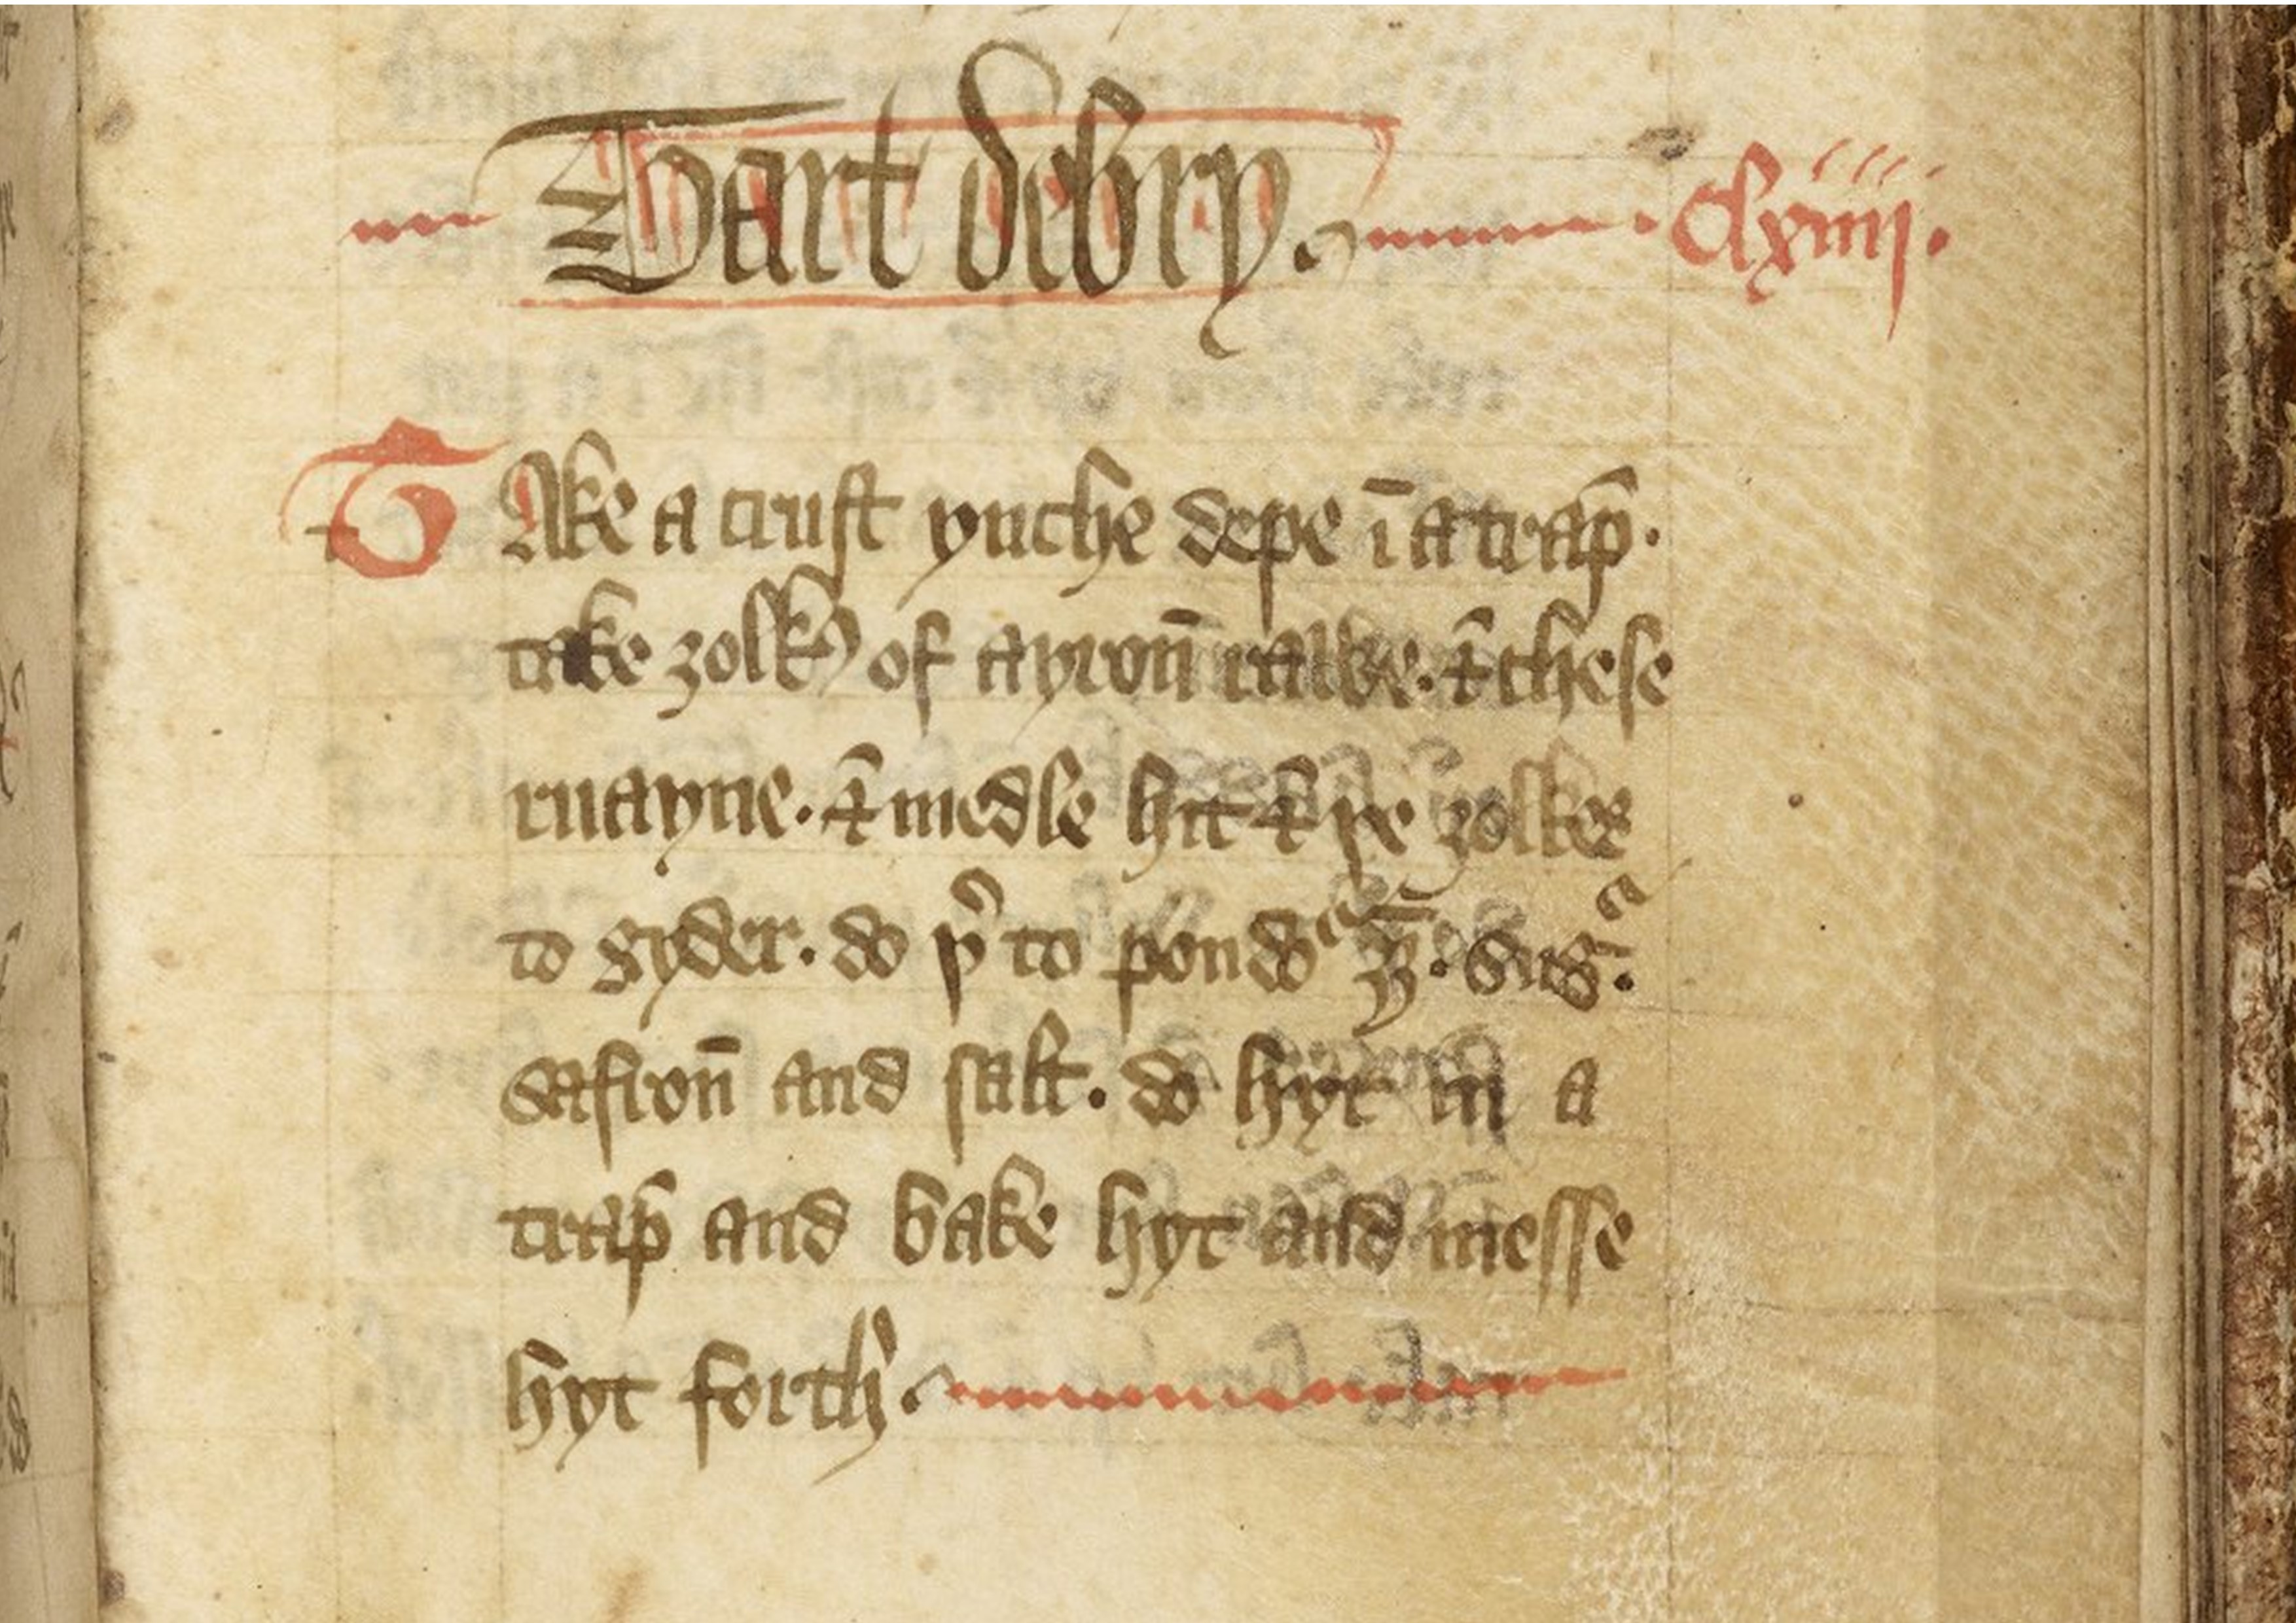 Tart debry. · Clxiiij.
TAke a crust ynche depe ī a trap̄.
take ȝolkꝭ of ayron̄ rawe. ⁊ chese
ruayne. ⁊ medle hit ⁊ þe ȝolkes
to gyder. do þ͛ to poudoͬ gȳ. sugᵃ.
safron̄ and salt. do hyt in a
trap̄ and bake hyt and messe
hyt forth.